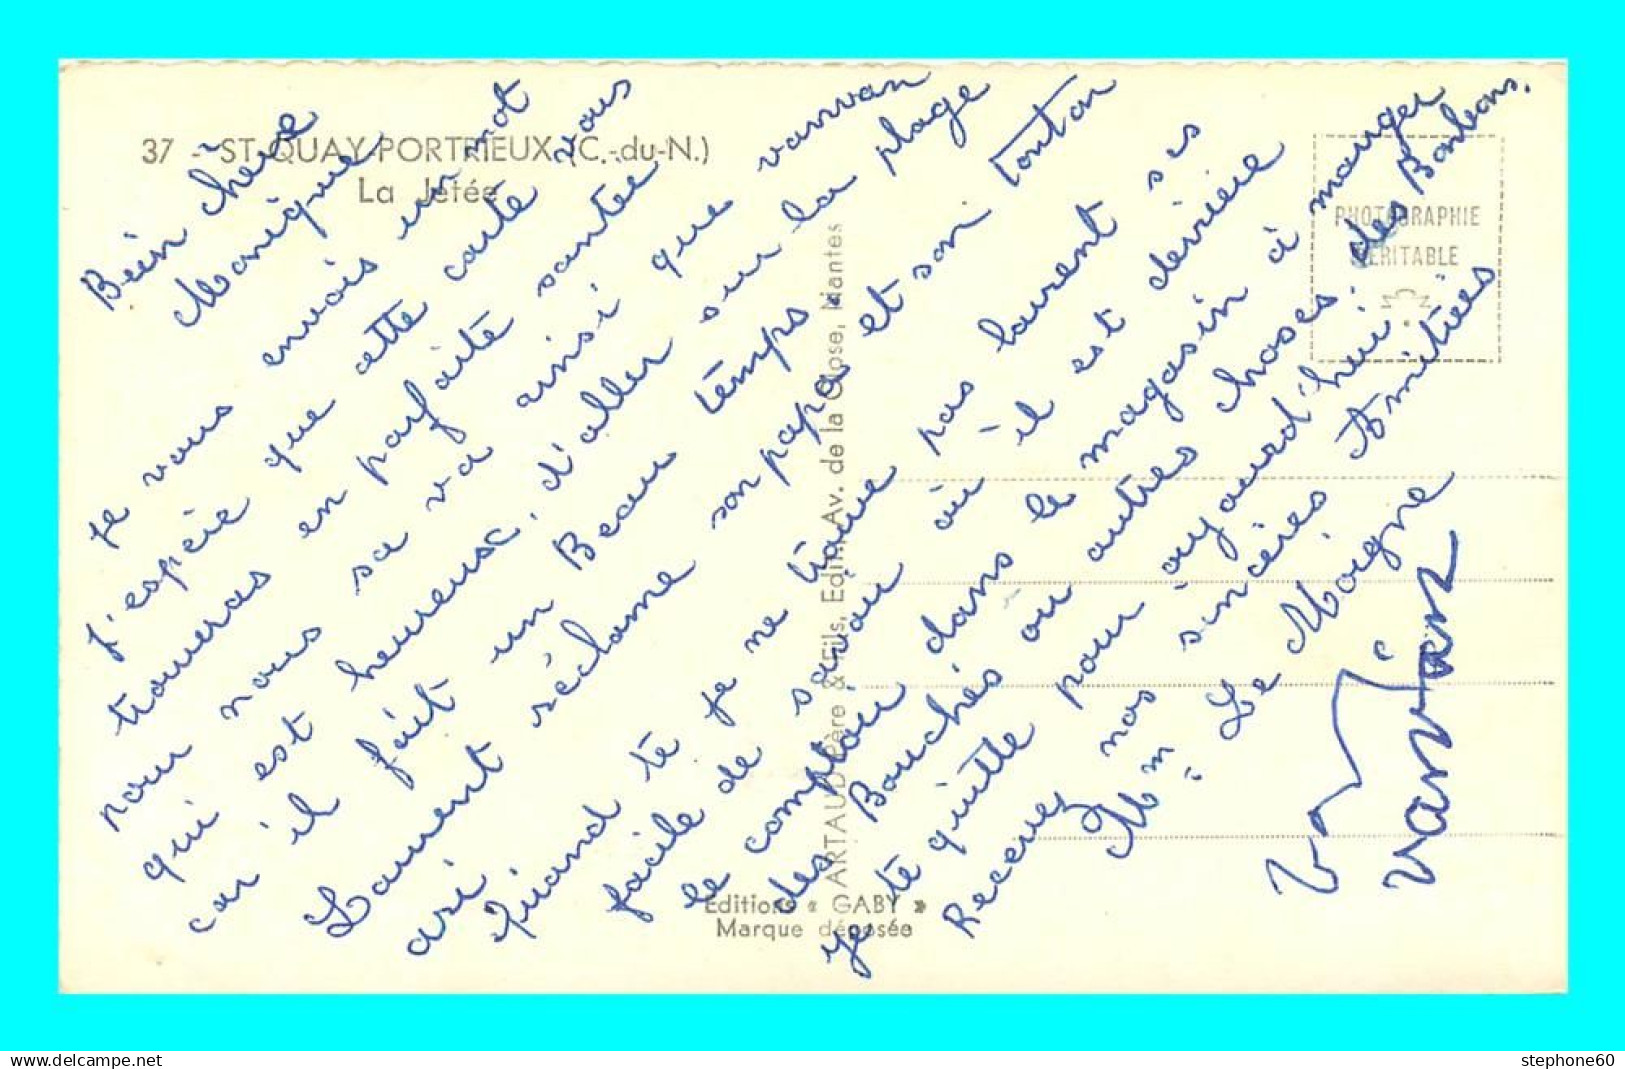 37 - ST-QUAY-PORTRIEUX (C.-du-N.)
La Jetée
Bein chère
Monique
je vous envois un mot
j'espére que cette carte vous
trouveras en parfaite santée
pour nous sa va ainsi que vanvan
qui est heureux, d'aller sur la plage
car il fait un Beau temps.
Laurent réclame son papa et son tonton
asi.
Quand té je ne trouve pas laurent ses
facile de savoir ou il est derriere
le comptoir dans le magasin à manger
des Bouchés ou autres choses, des Bonbons.
je te quitte pour aujourd'hui
Recevez nos sincéres Amitiées
Mm Le Moigne
vanvan
PHOTOGRAPHIE
VÉRITABLE
ARTAUD Père & Fils, Edit., Av. de la Close, Nantes
Editions « GABY »
Marque déposée
www.delcampe.net
stephone60